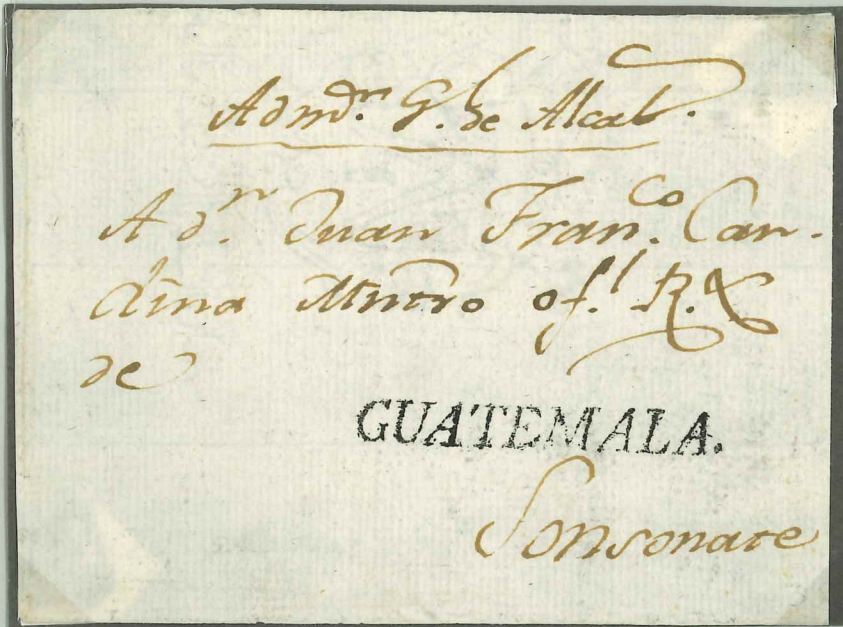 Admōr. G.l de Alcab.
A dn. Juan Fran.co Can-
dina Mntro of.l R.l &
de
GUATEMALA.
Sonsonate